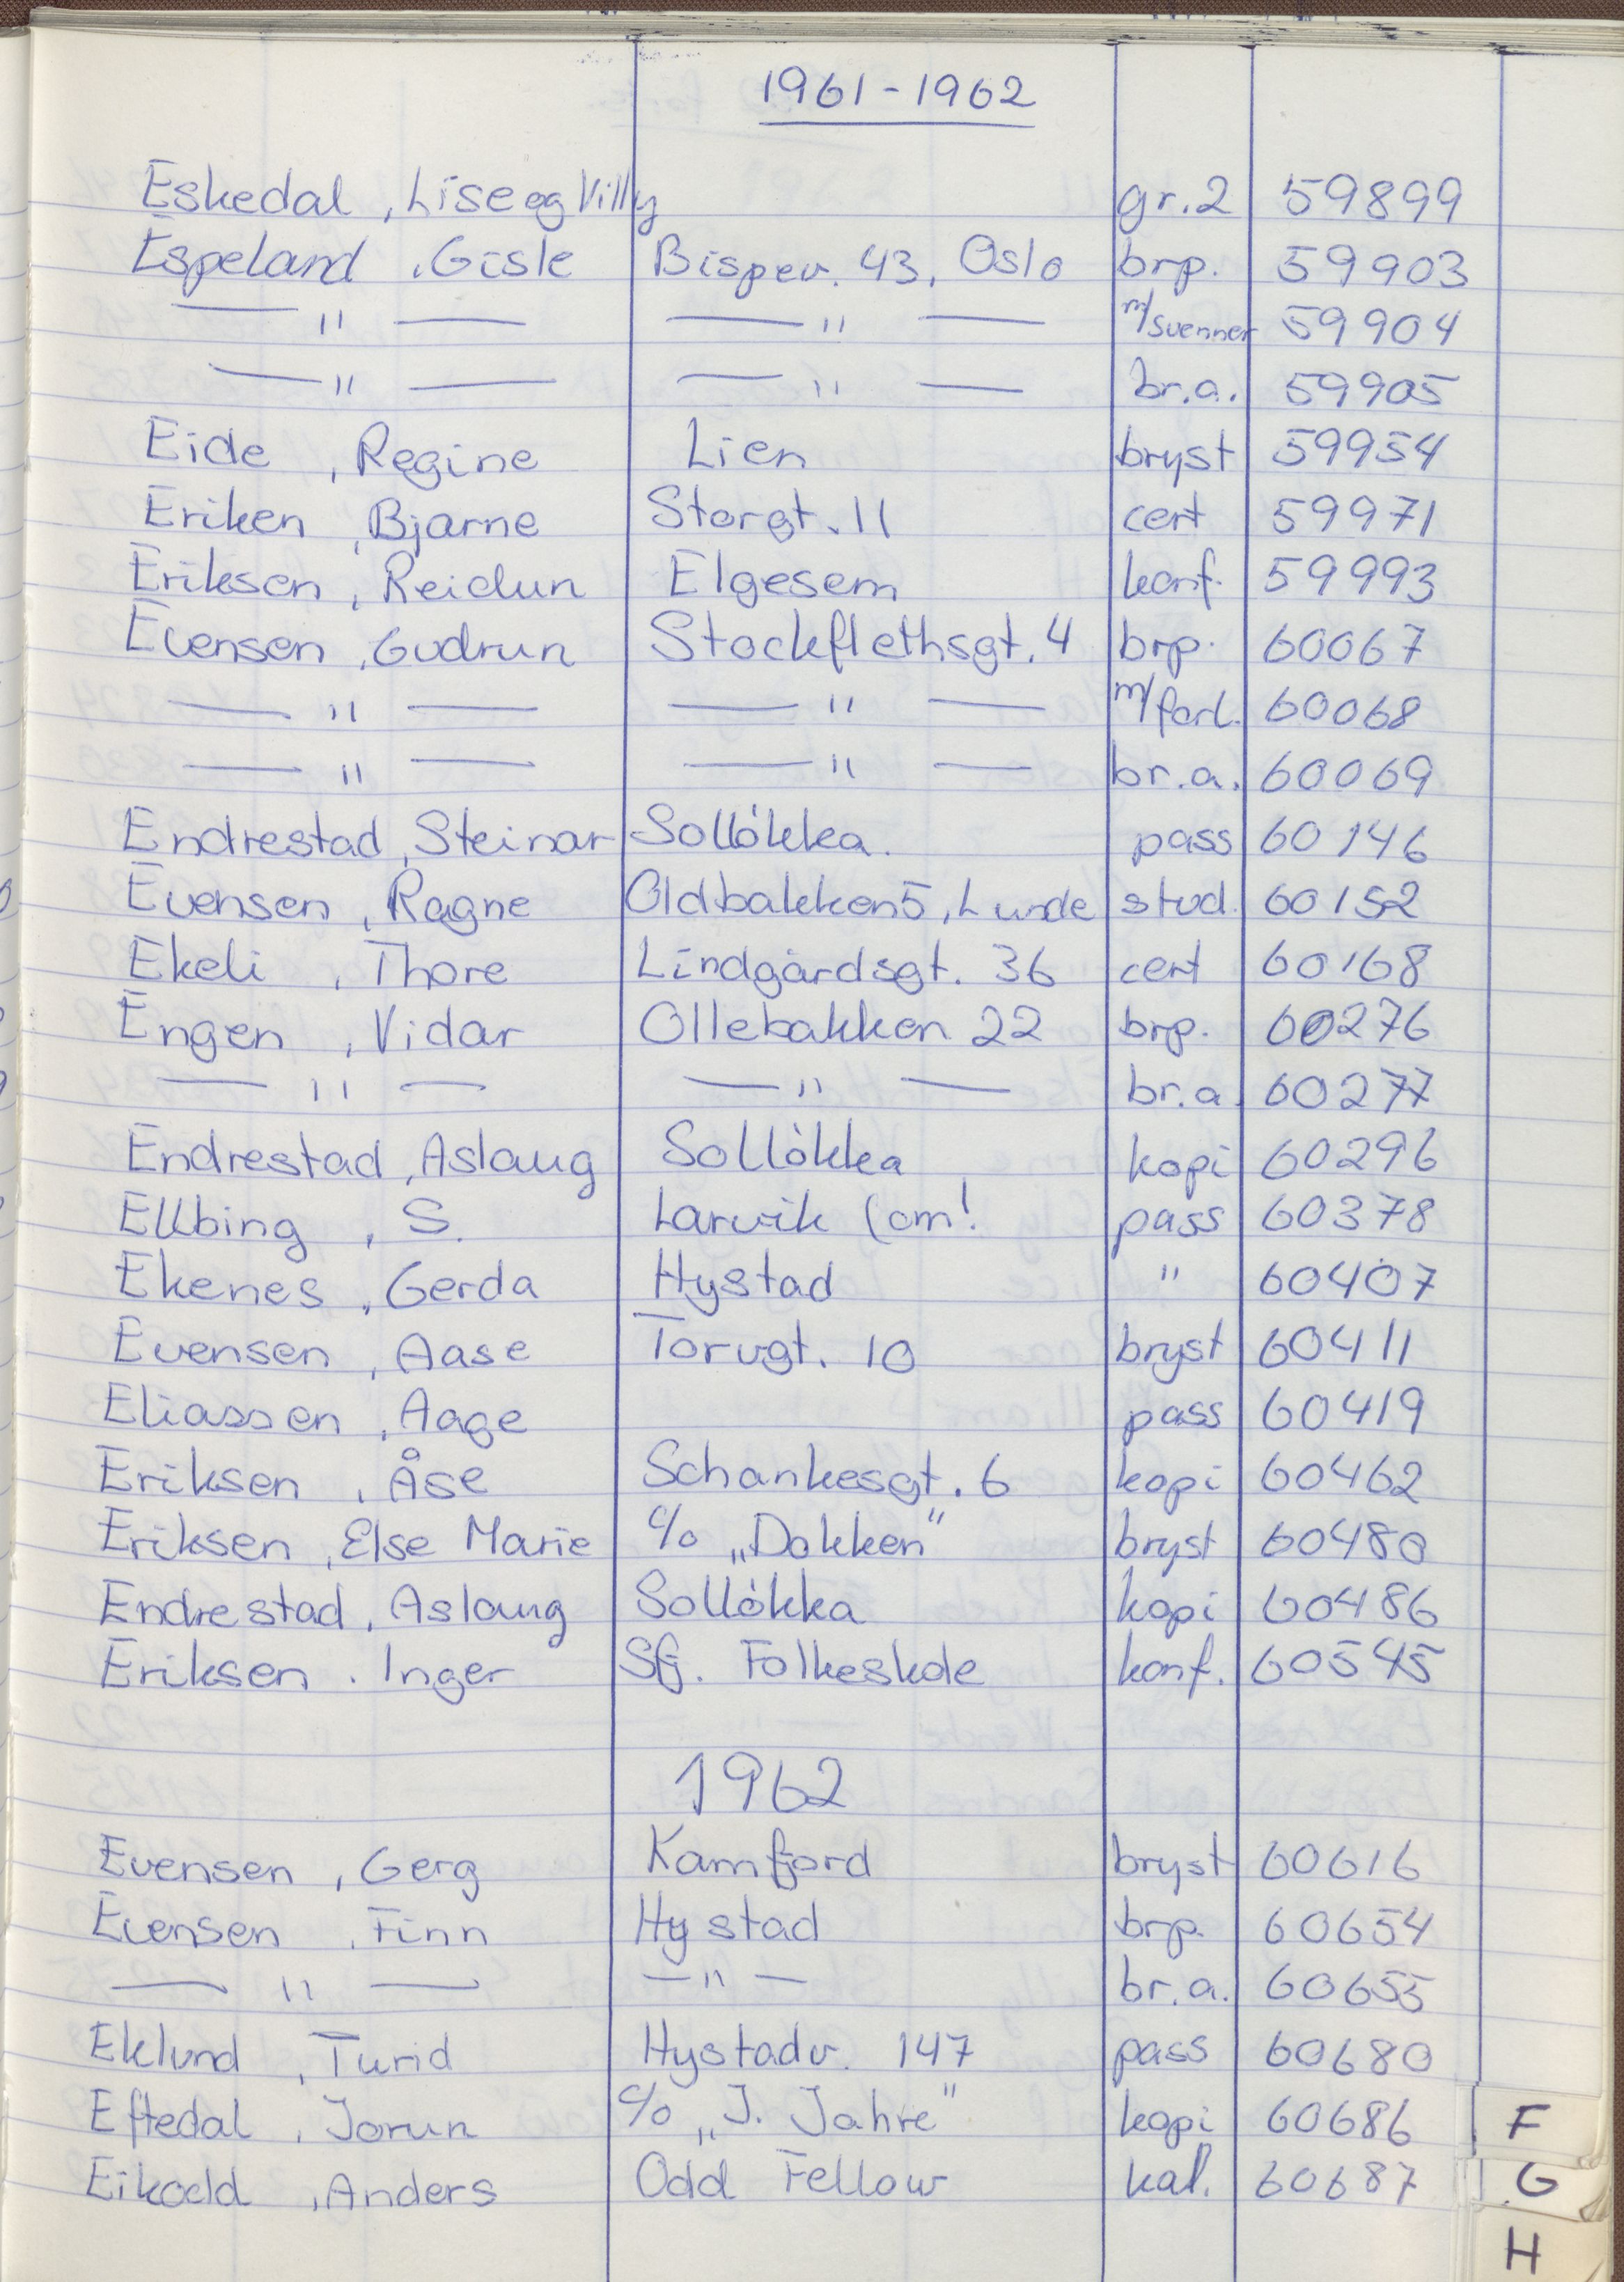 1961-1962
Eskedal, Lise og Villy gr.2 59899
Espeland, Gisle Bispev. 43, Oslo brp. 59903
— " — — " — m/svenner 59904
— " — — " — br.a. 59905
Eide, Regine Lien bryst 59954
Eriken, Bjarne Storgt. 11 cert 59971
Eriksen, Reidun Elgesem konf. 59993
Evensen, Gudrun Stockflethsgt. 4 brp. 60067
— " — — " — m/forl. 60068
— " — — " — br.a. 60069
Endrestad, Steinar Solløkka. pass 60146
Evensen, Ragne Oldbakken 5, Lunde stud. 60152
Ekeli, Thore Lindgårdsgt. 36 cert 60168
Engen, Vidar Ollebakken 22 brp. 60276
— " — — " — br.a. 60277
Endrestad, Aslaug Solløkka kopi 60296
Ellbing, S. Larvik (om! pass 60378
Ekenes, Gerda Hystad " 60407
Evensen, Aase Torvgt. 10 bryst 60411
Eliassen, Aage pass 60419
Eriksen, Åse Schankesgt. 6 kopi 60462
Eriksen, Else Marie c/o „Dokken" bryst 60480
Endrestad, Aslaug Solløkka kopi 60486
Eriksen. Inger Sfj. Folkeskole konf. 60545
1962
Evensen, Gerg Kamfjord bryst 60616
Evensen, Finn Hystad brp. 60654
— " — — " — br.a. 60655
Eklund, Turid Hystadv. 147 pass 60680
Eftedal, Jorun c/o „J. Jahre" kopi 60686
Anders Odd Fellow kal. 60687
F
G
H